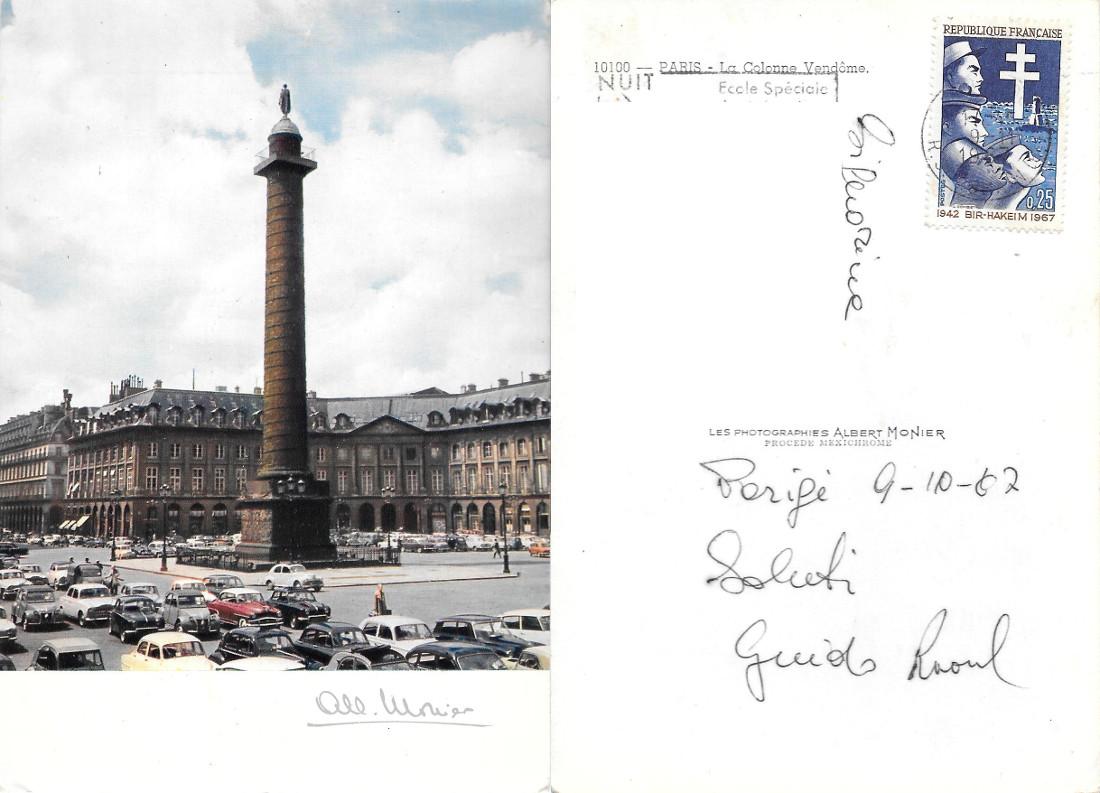 Alb. Monier
10100 — PARIS - La Colonne Vendôme.
NUIT
Ecole Spéciale
REPUBLIQUE FRANÇAISE
POSTES
0,25
1942 BIR-HAKEIM 1967
LES PHOTOGRAPHIES ALBERT MONIER
PROCEDE MEXICHROME
Parigi 9-10-67
Saluti
Guido Raoul